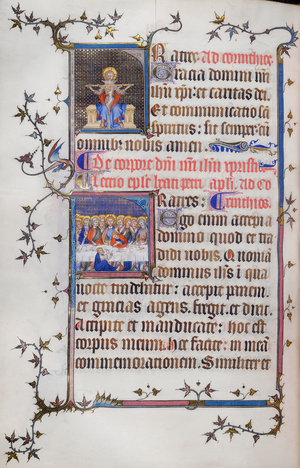 Ratres. Ad corinthios.
Gracia domini nri
ihu xpi. et caritas dei.
Et communicatio sci
spiritus: sit semper cum
omnibus nobis amen.
De corpore dni nri ihu xpristi
Lectio eple beati pauli apli. ad co
Ratres: rinthios.
Ego enim accepi a
domino quod et tra
didi nobis. Quoniam
dominus ihs in qua
nocte tradebatur: accepit panem.
et gracias agens. fregit. et dixit.
Accipite et manducate: hoc est
corpus meum. hoc facite: in meam
commemorationem. Similiter et